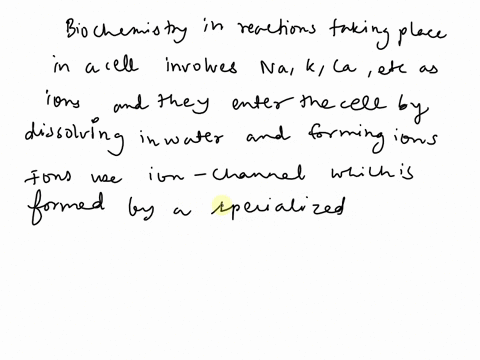 Biochemistry in reactions taking place
in a cell involves Na, K, Ca, etc as
ions and they enter the cell by
dissolving in water and forming ions
Ions use ion-channel which is
formed by a specialized